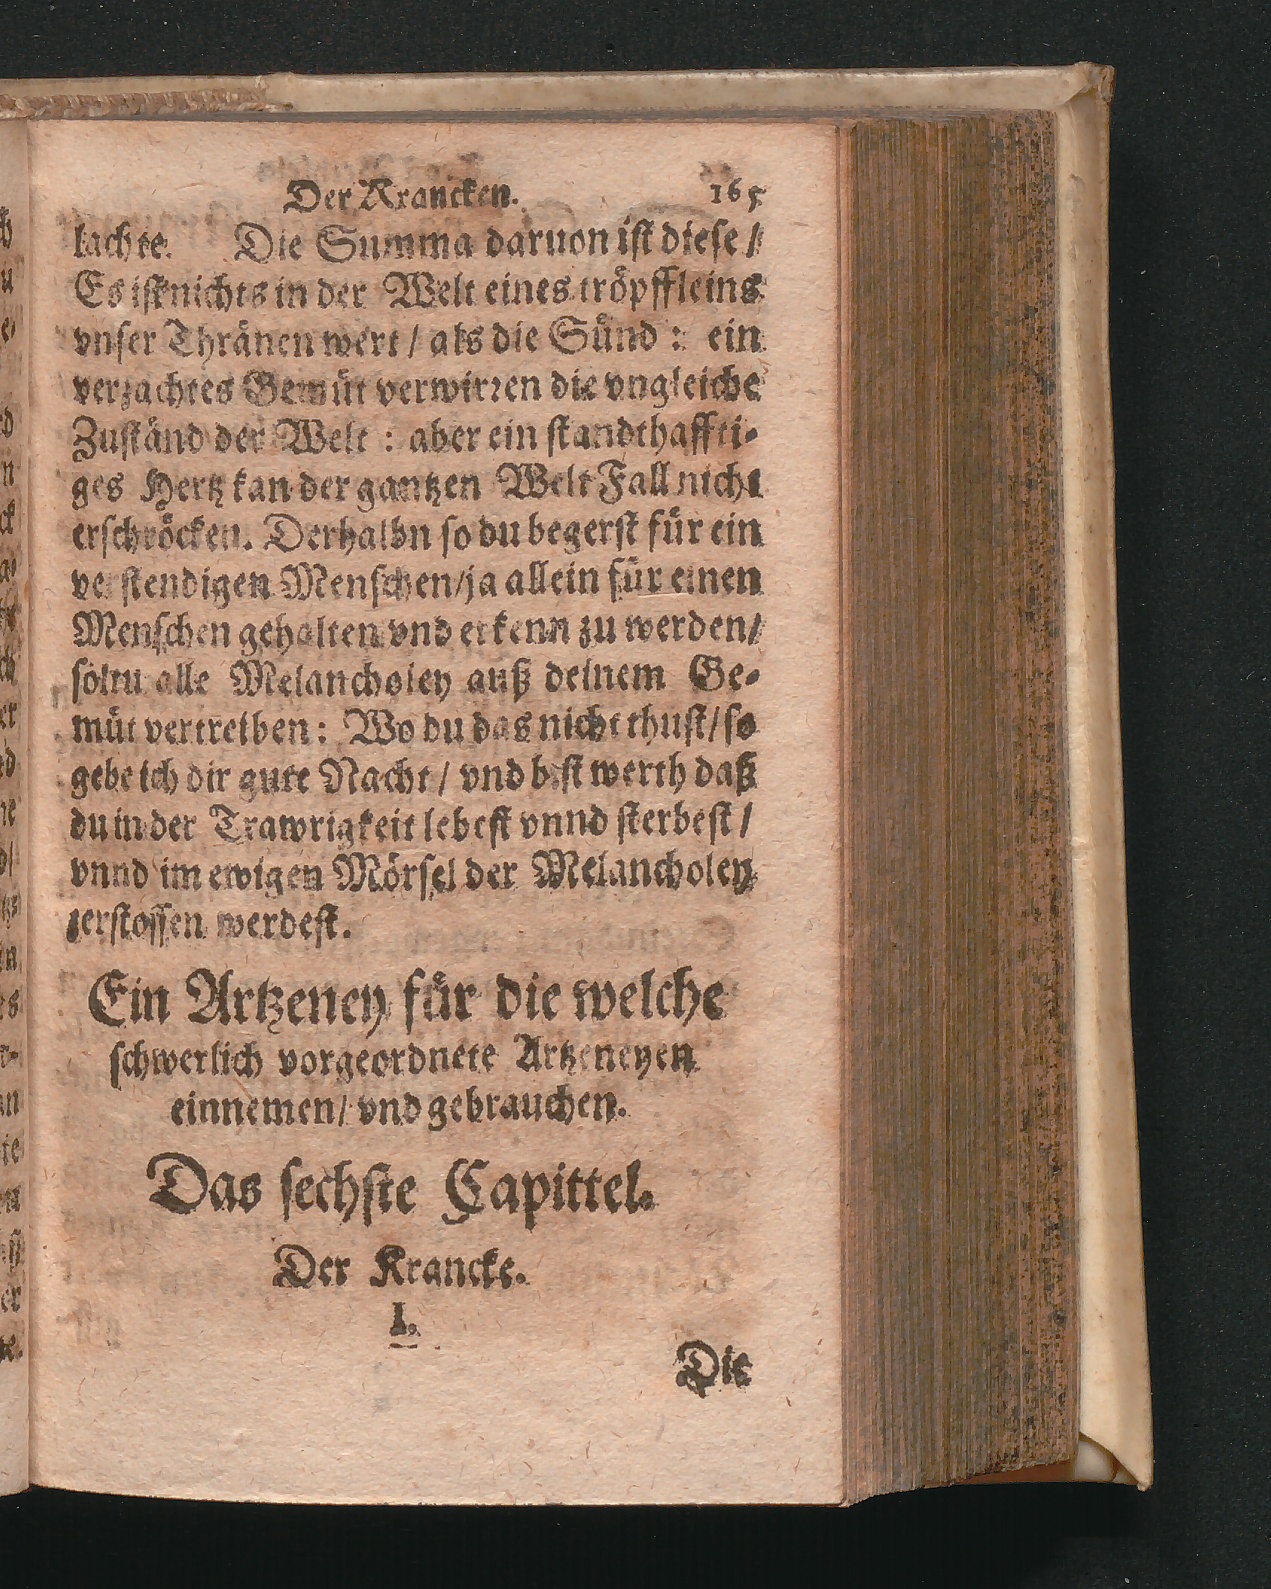 Der Krancken. 165
lachte. Die Summa daruon ist diese /
Es ist nichts in der Welt eines tröpffleins
vnser Thränen wert / als die Sünd: ein
verzachtes Gemüt verwirren die vngleiche
Zuständ der Welt: aber ein standthaffti-
ges Hertz kan der gantzen Welt Fall nicht
erschröcken. Derhalbn so du begerst für ein
verstendigen Menschen/ja allein für einen
Menschen gehalten vnd erkenn zu werden/
soltu alle Melancholey auß deinem Ge-
müt vertreiben: Wo du das nicht thust/so
gebe ich dir gute Nacht / vnd bist werth daß
du in der Trawrigkeit lebest vnnd sterbest /
vnnd im ewigen Mörsel der Melancholey
zerstossen werdest.
Ein Artzeney für die welche
schwerlich vorgeordnete Artzeneyen
einnemen/ vnd gebrauchen.
Das sechste Capittel.
Der Krancke.
I.
Die